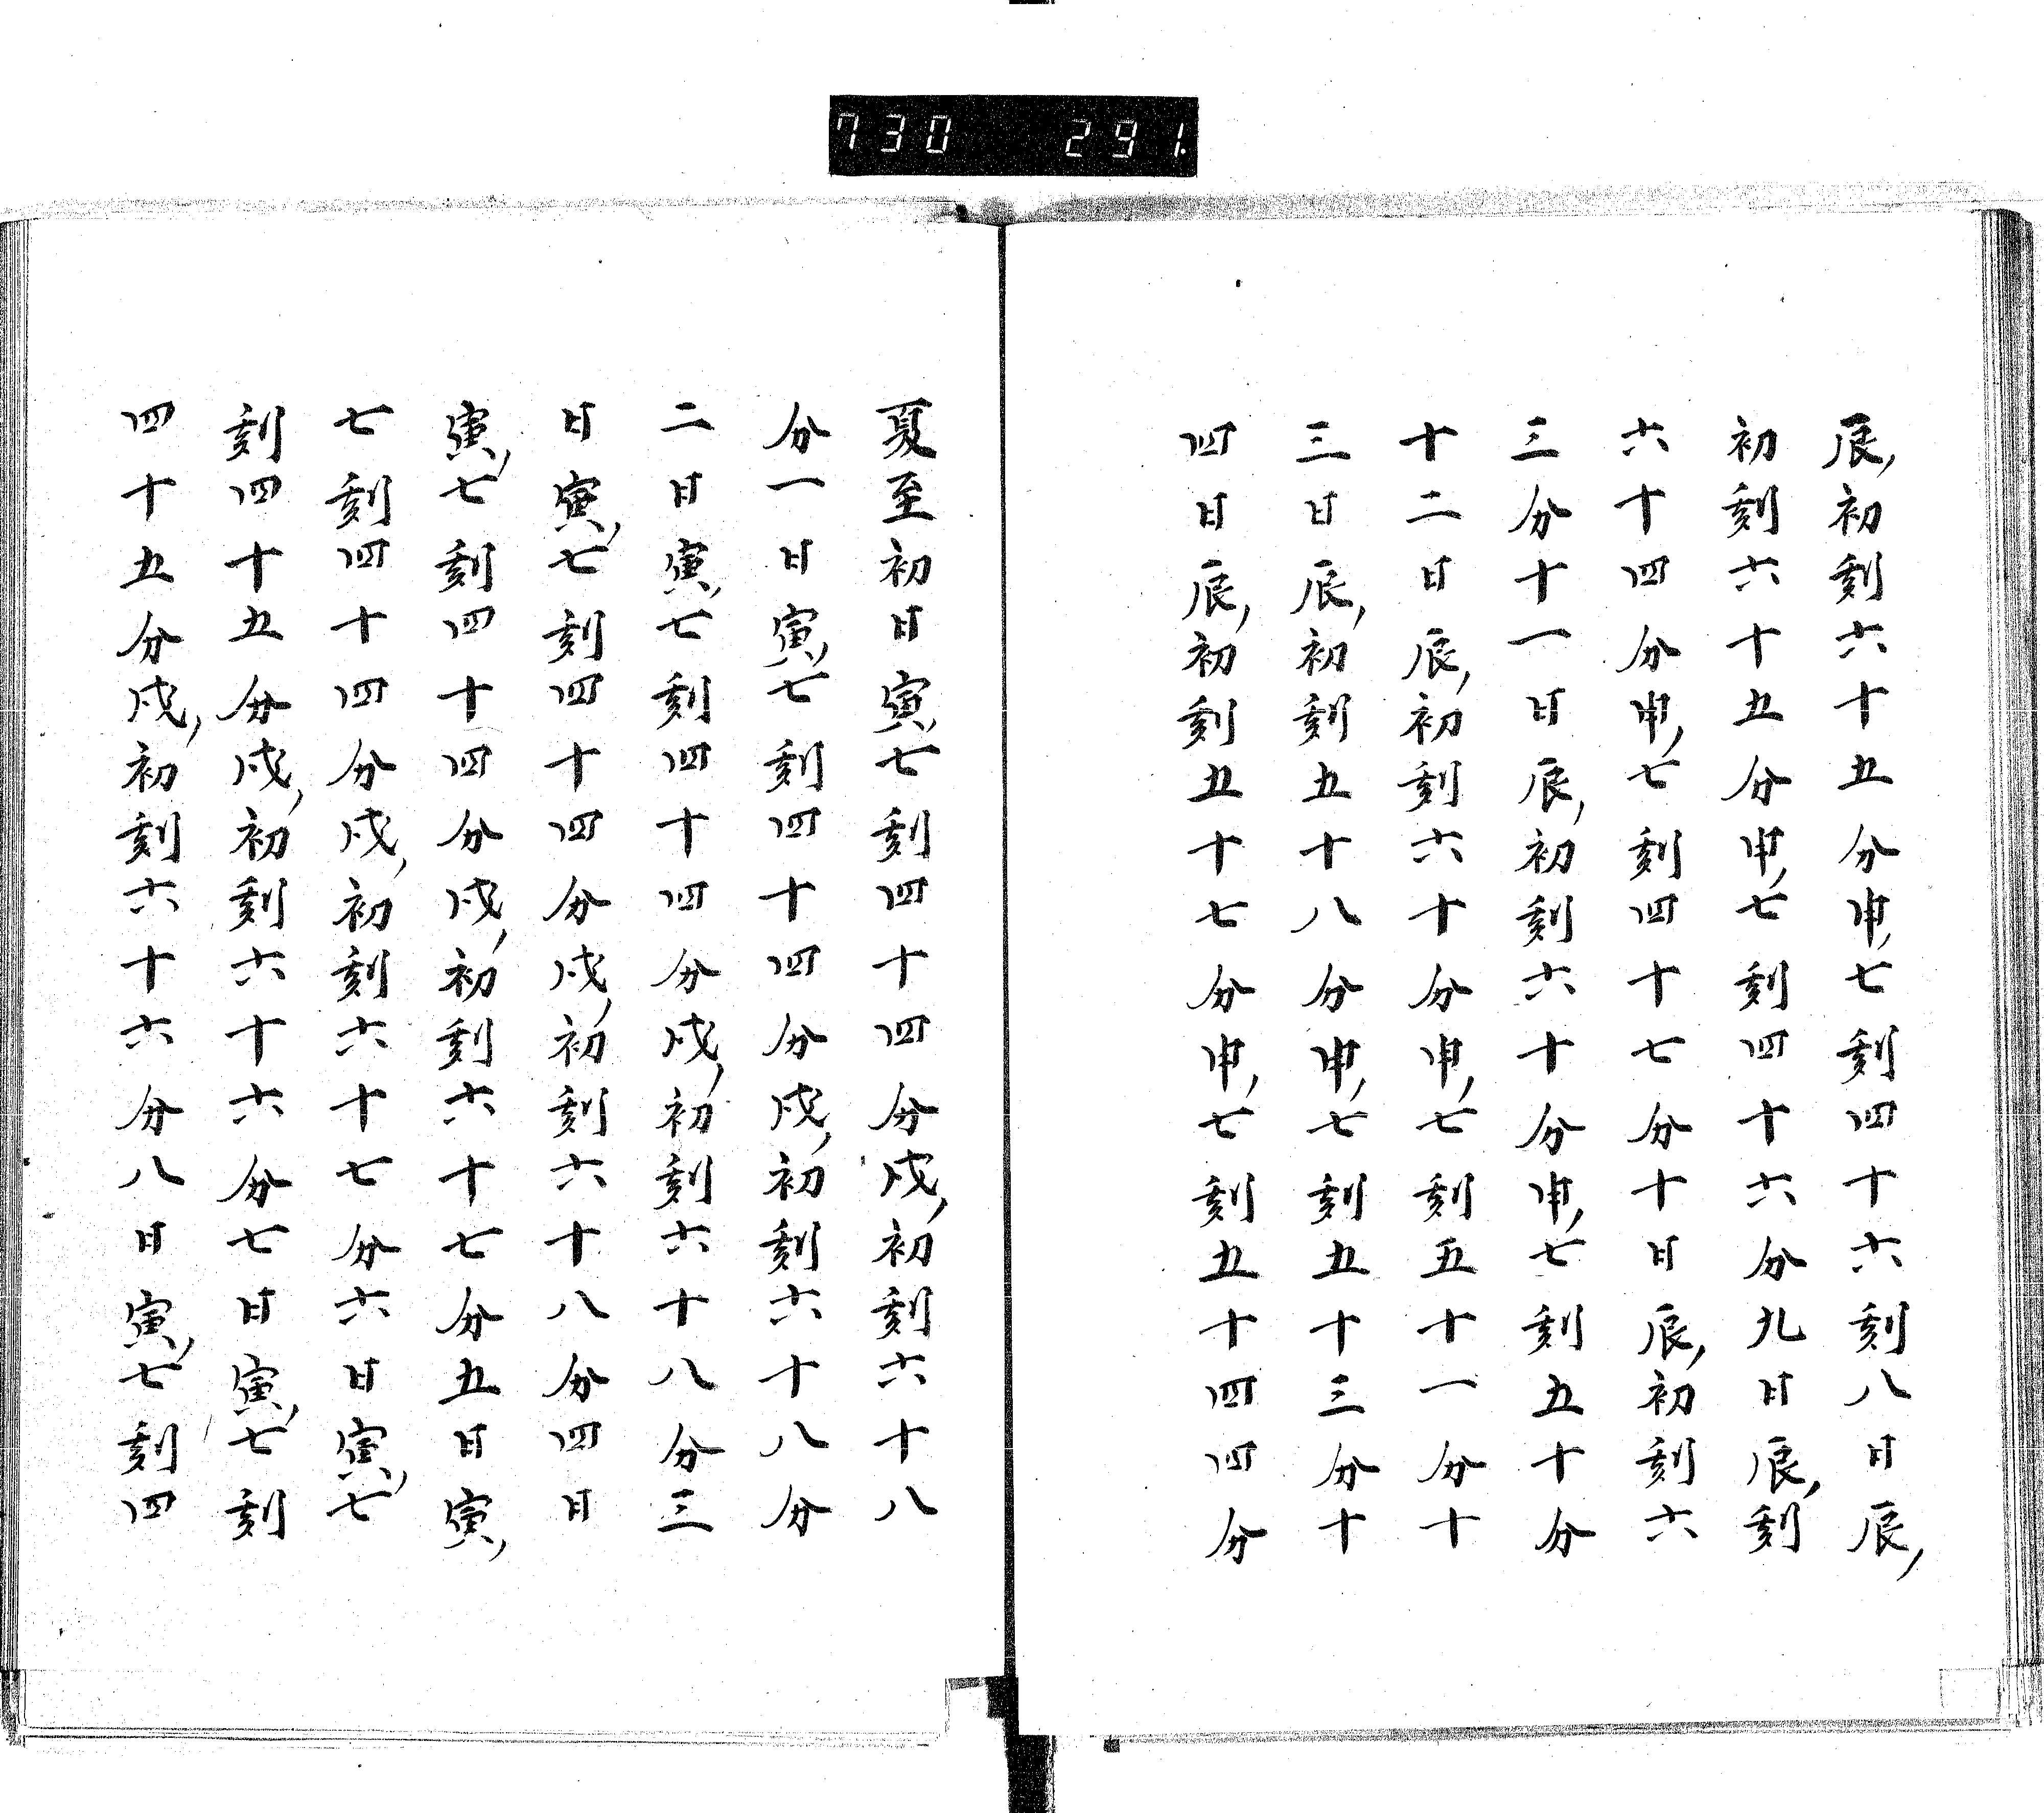 730 291
辰,初刻六十五分申,七刻四十六刻八日辰,
初刻六十五分申,七刻四十六分九日辰,刻
六十四分申,七刻四十七分十日辰,初刻六
三分十一日辰,初刻六十分申,七刻五十分
十二日辰,初刻六十分申,七刻五十一分十
三日辰,初刻五十八分申,七刻五十三分十
四日辰,初刻五十七分申,七刻五十四四分
夏至初日寅,七刻四十四分戌,初刻六十八
分一日寅,七刻四十四分戌,初刻六十八分
二日寅,七刻四十四分戌,初刻六十八分三
日寅,七刻四十四分戌,初刻六十八分四日
寅,七刻四十四分戌,初刻六十七分五日寅,
七刻四十四分戌,初刻六十七分六日寅,七
刻四十五分戌,初刻六十六分七日寅,七刻
四十五分戌,初刻六十六分八日寅,七刻四